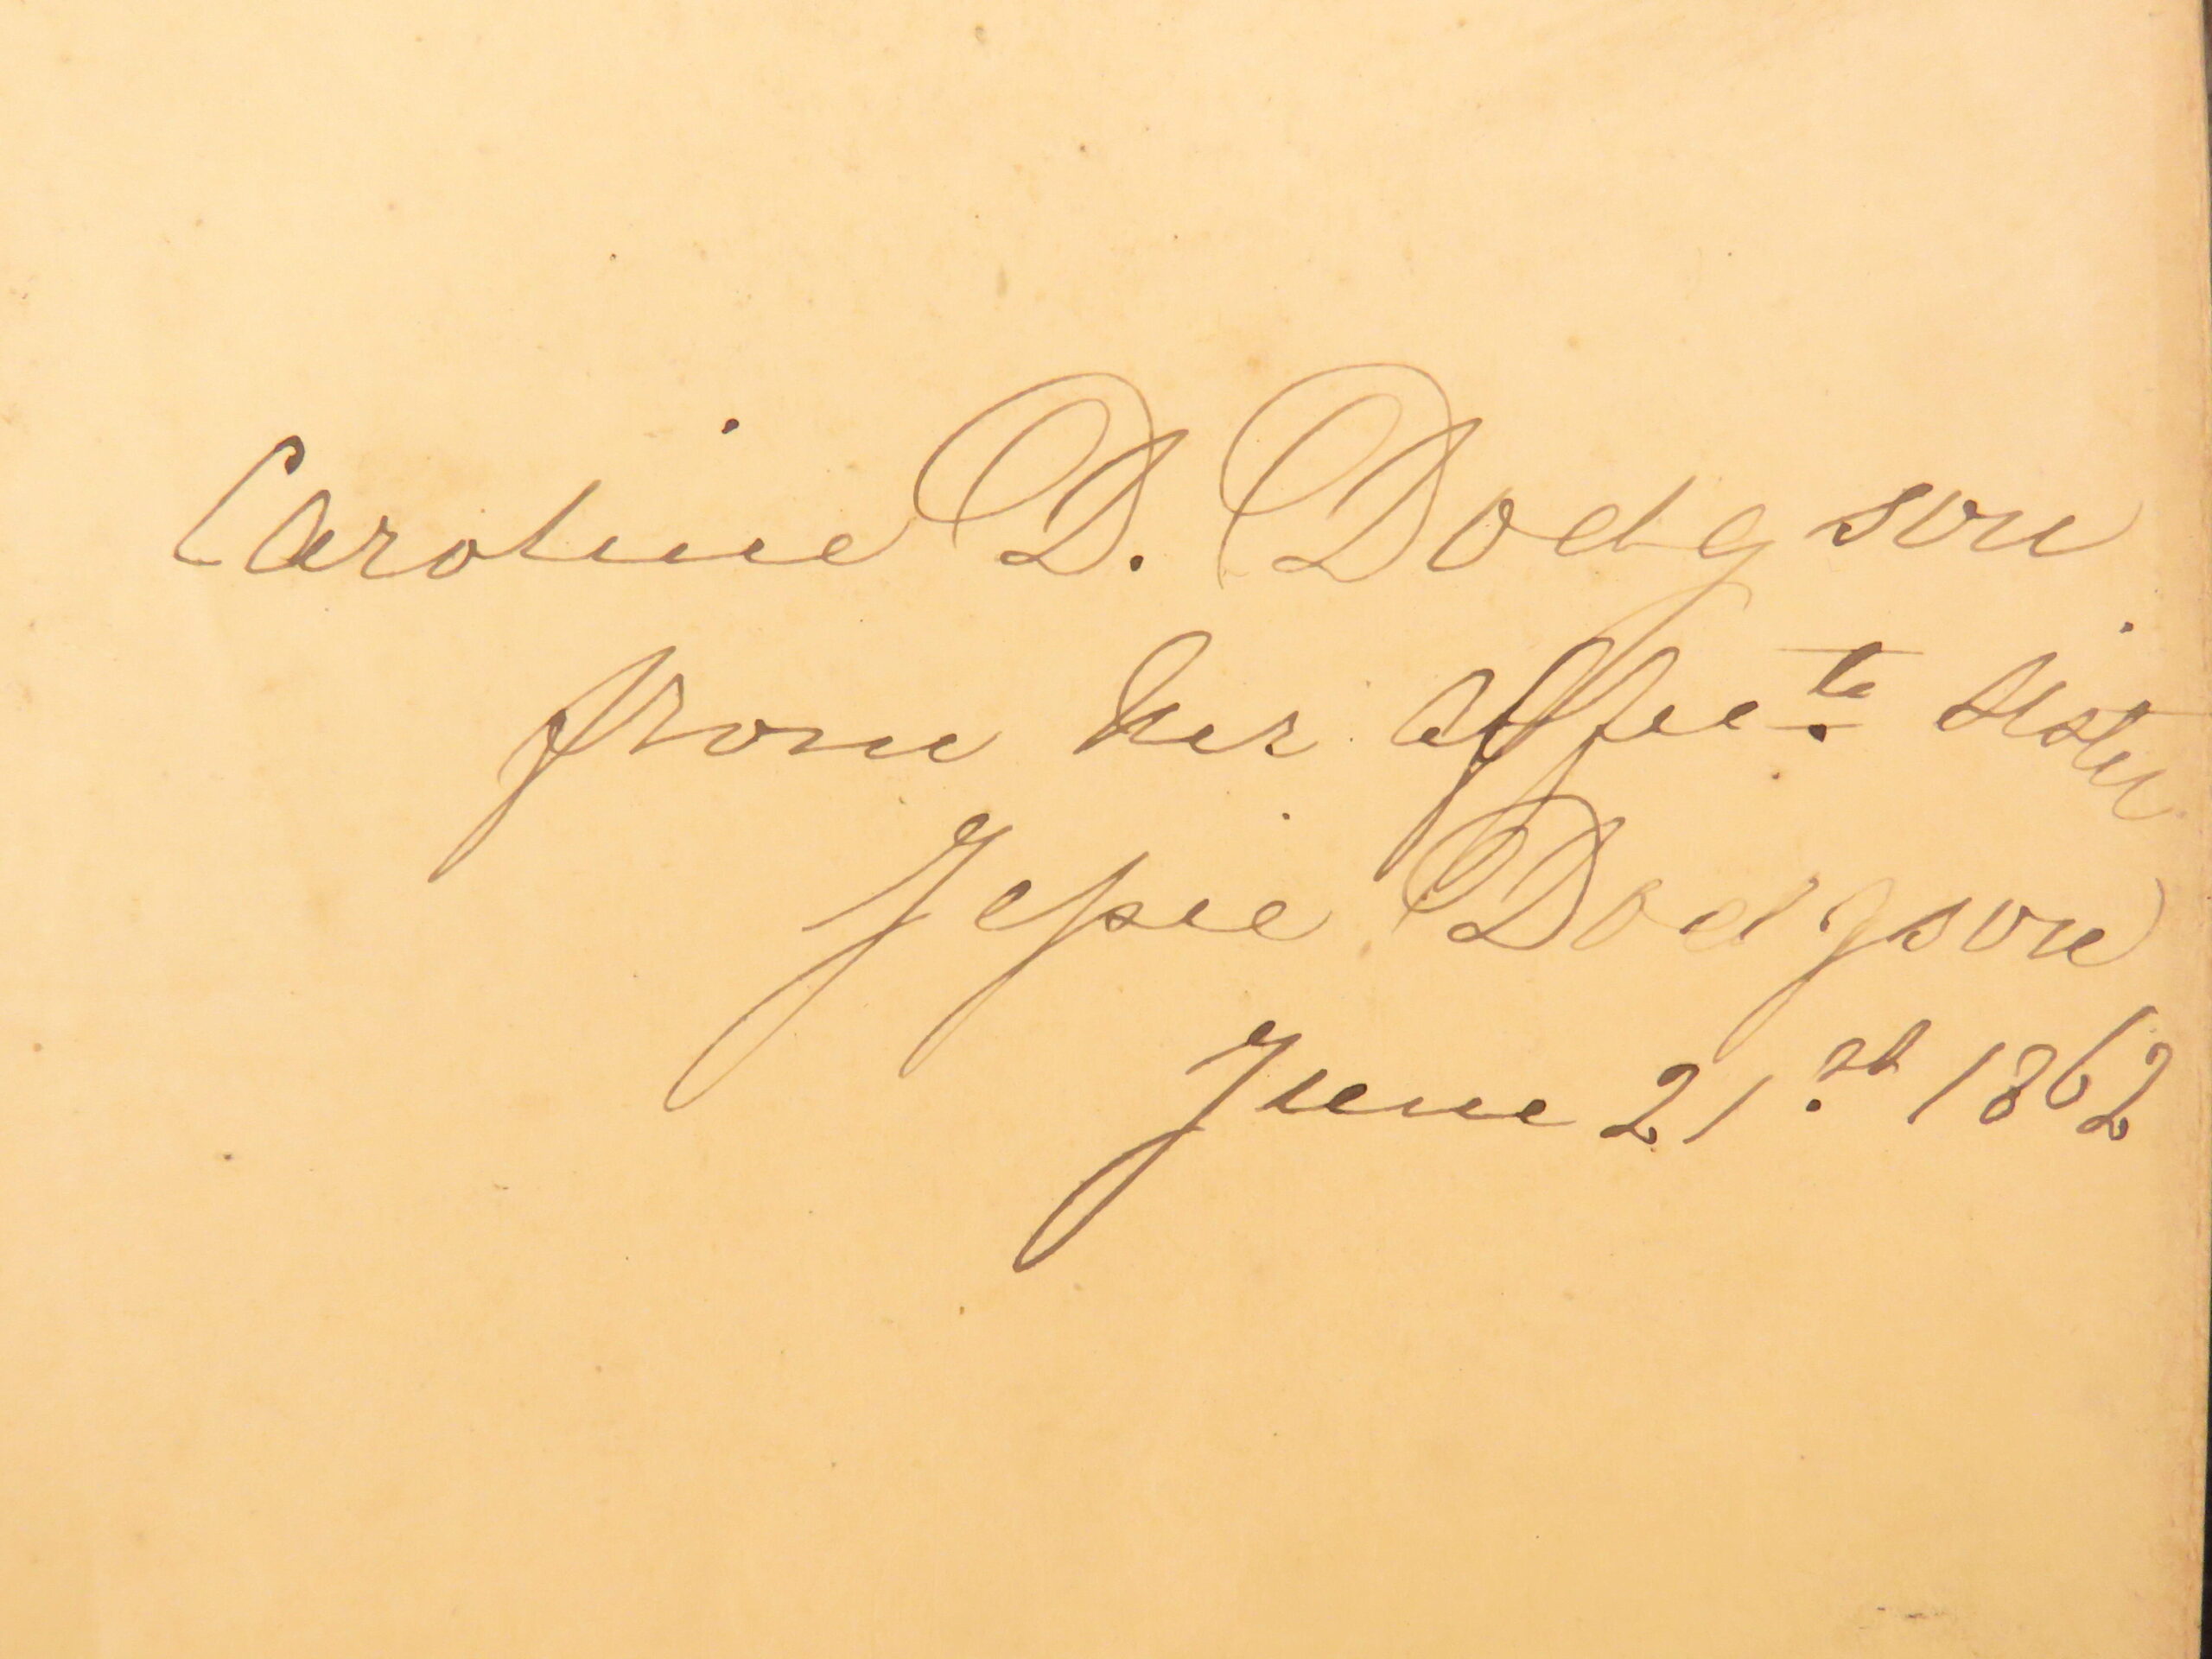 Caroline D. Dodgson
from her affec.te sister
Jessie Dodgson
June 21.st 1862